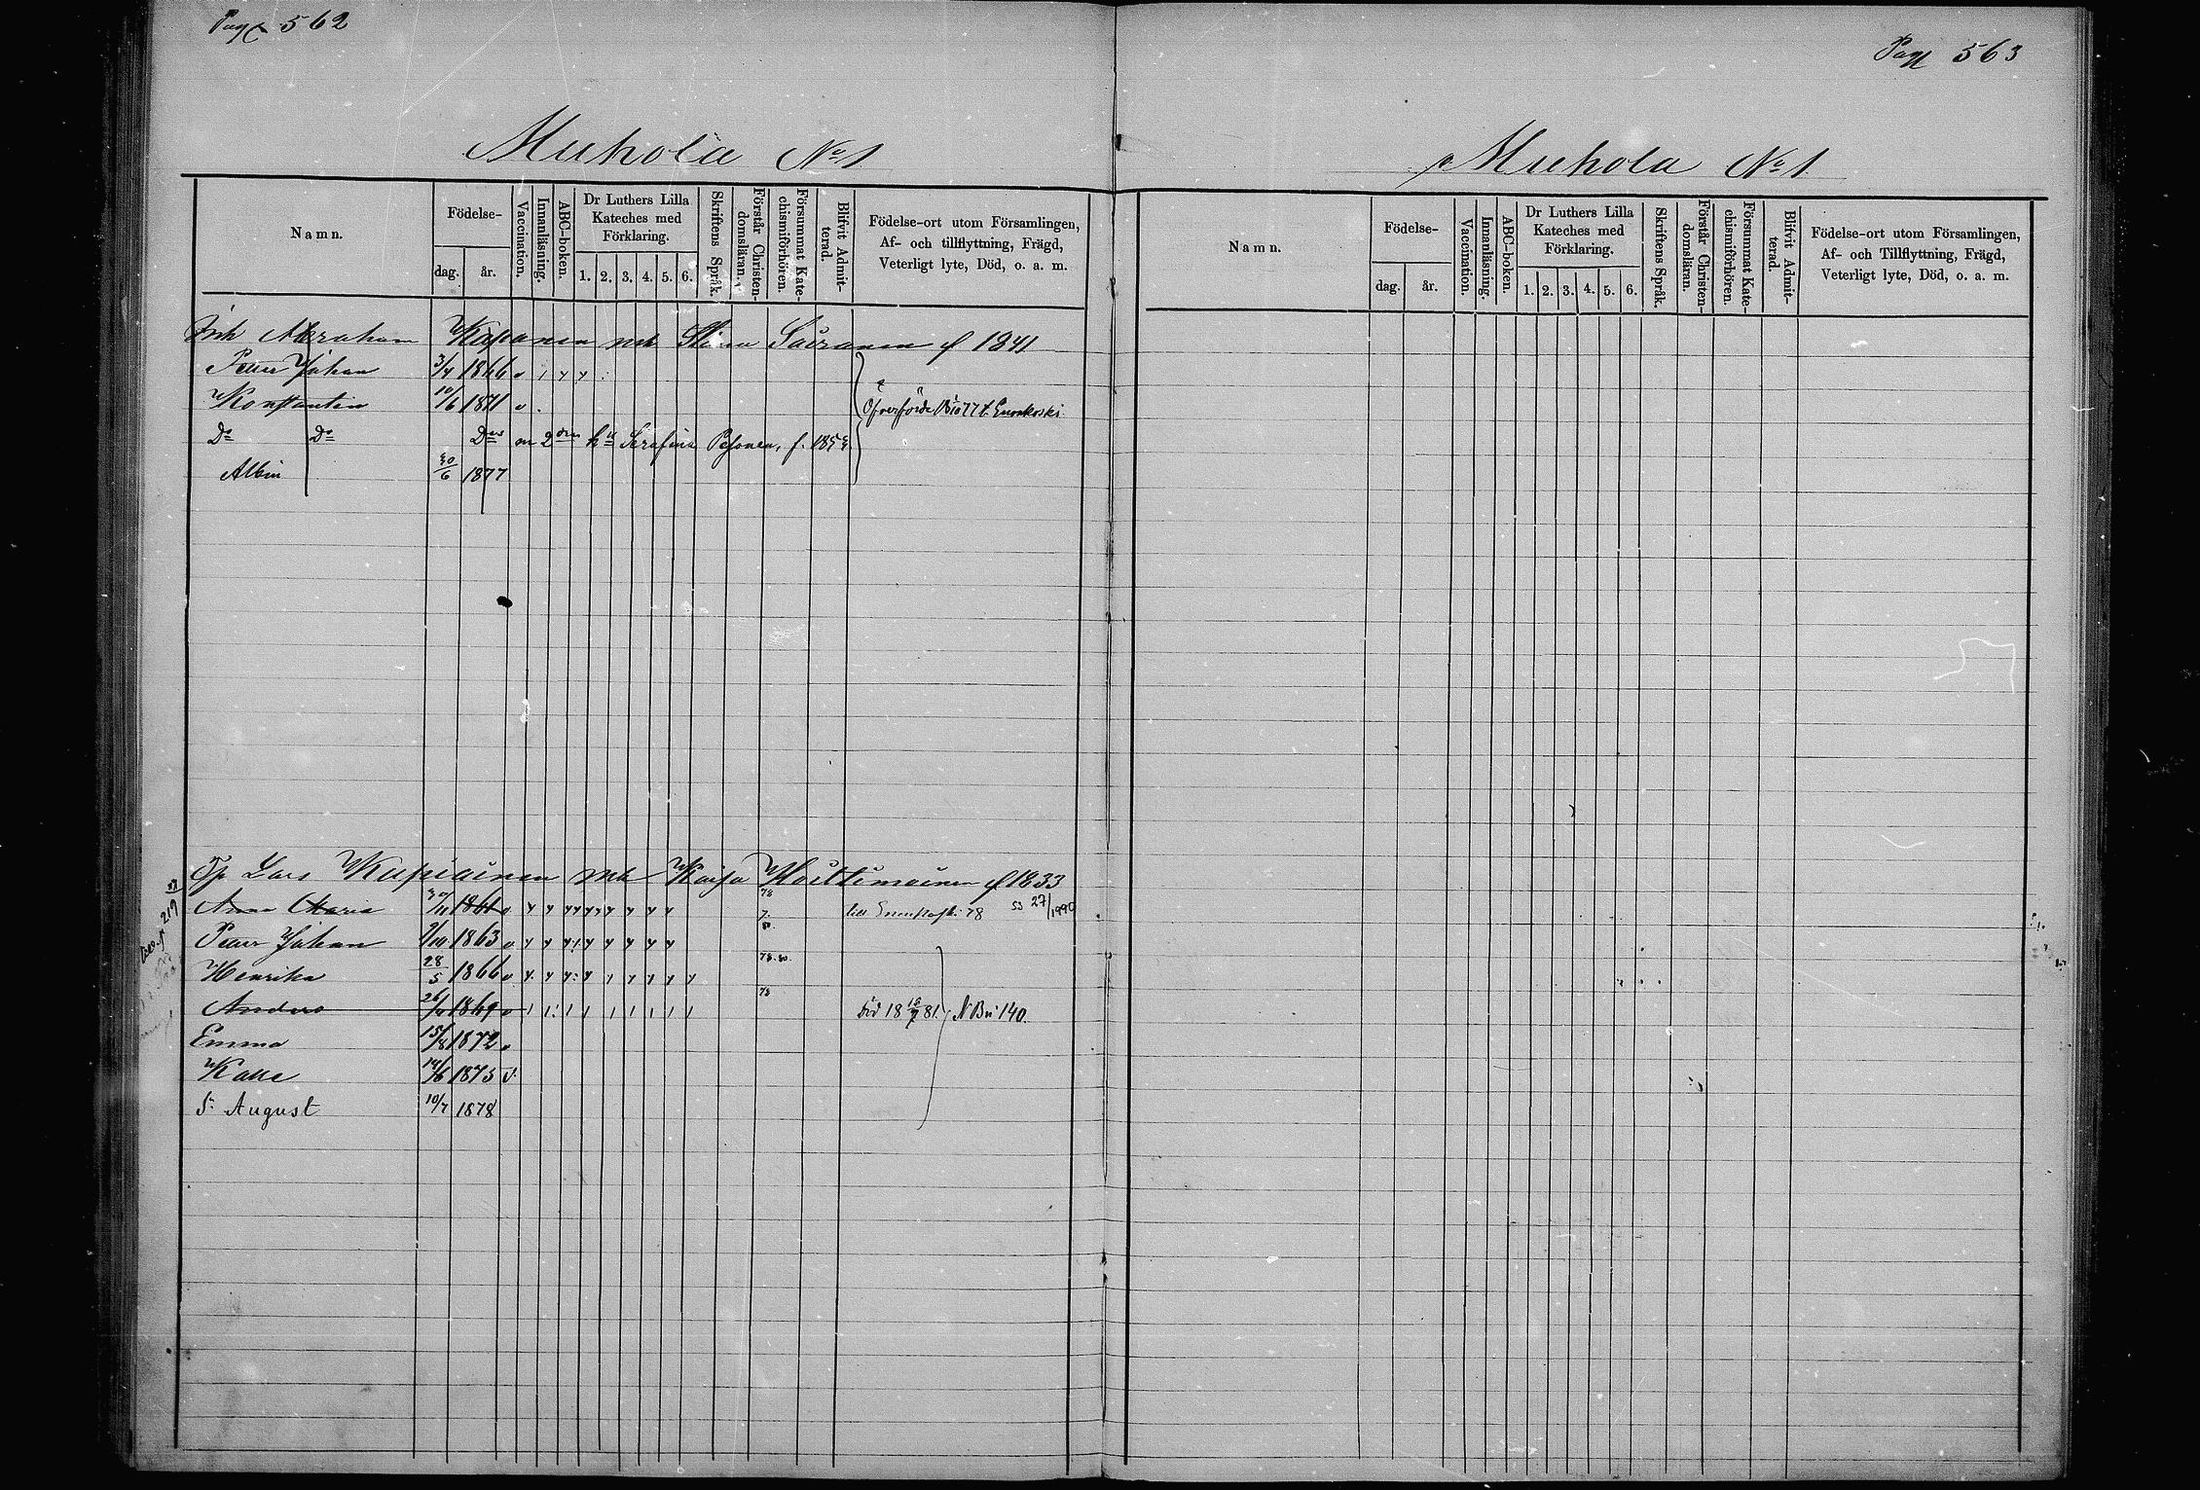 Pag 562
Muhola No 1
Namn.
Födelse-
dag.
år.
Vaccination.
Innanläsning.
ABC-boken.
Dr Luthers Lilla
Kateches med
Förklaring.
1. 2. 3. 4. 5. 6.
Skriftens Språk.
Förstår Christen-
domsläran.
Försummat Kate-
chismiförhören.
Blifvit Admit-
terad.
Födelse-ort utom Församlingen,
Af- och tillflyttning, Frägd,
Veterligt lyte, Död, o. a. m.
Inh Abraham Kapanen mh Stina f 1841
Petter Johan 3/7 1866 v
Konstantin 10/6 1871 v
Do Do m 2 hu Serafina Pesonen, f.
Albin 30/6 1877
Lars Kupiainen mh Kaisa f 1833
Anna Maria 1861 v 78
Petter Johan 1863 v
Henrika 28/5 1866 v
Anders 1869 v 78 död 18 81. N Bu 140.
Emma 15/8 1872 v
Kalle 1875 v.
S. August 10/7 1878
Pag 563
Muhola No 1
Namn.
Födelse-
dag.
år.
Vaccination.
Innanläsning.
ABC-boken.
Dr Luthers Lilla
Kateches med
Förklaring.
1. 2. 3. 4. 5. 6.
Skriftens Språk.
Förstår Christen-
domsläran.
Försummat Kate-
chismiförhören.
Blifvit Admit-
terad.
Födelse-ort utom Församlingen,
Af- och Tillflyttning, Frägd,
Veterligt lyte, Död, o. a. m.